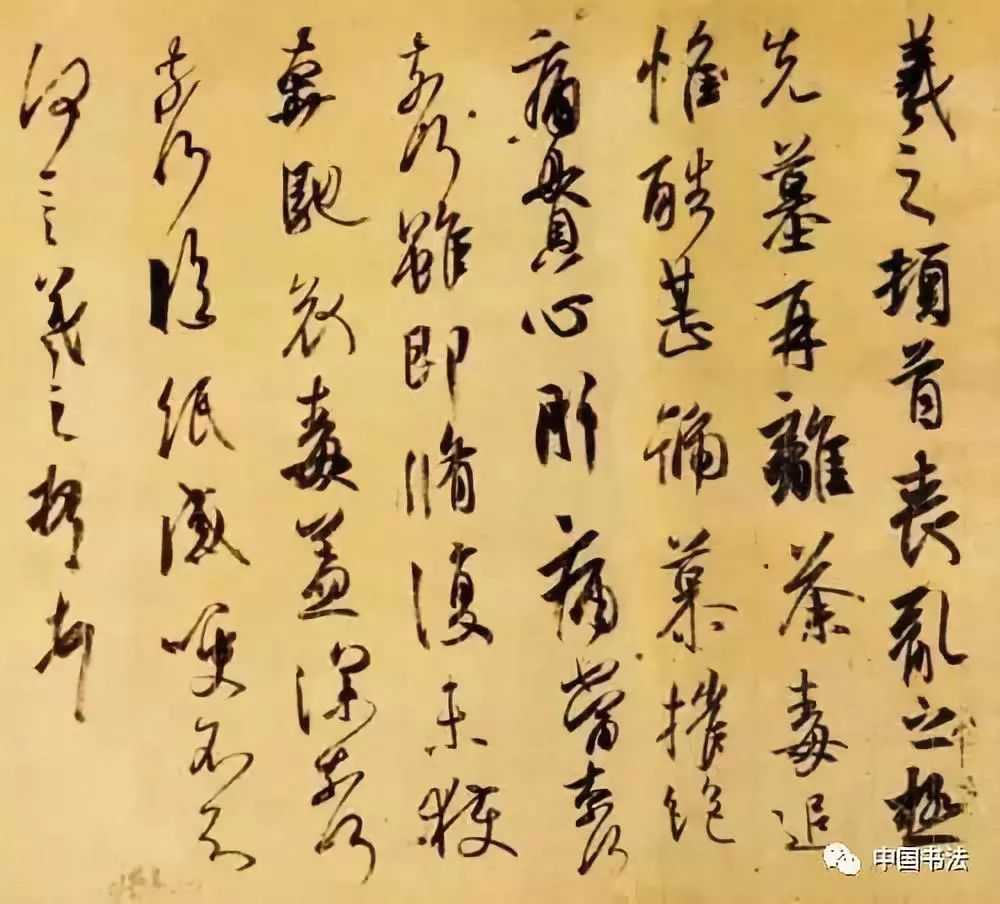 羲之頓首喪亂之極
先墓再離荼毒追
惟酷甚號慕摧絕
痛貫心肝痛當奈何
奈何雖即脩復未獲
奔馳哀毒益深奈何
奈何臨紙感哽不知
何言羲之頓首頓首
中国书法